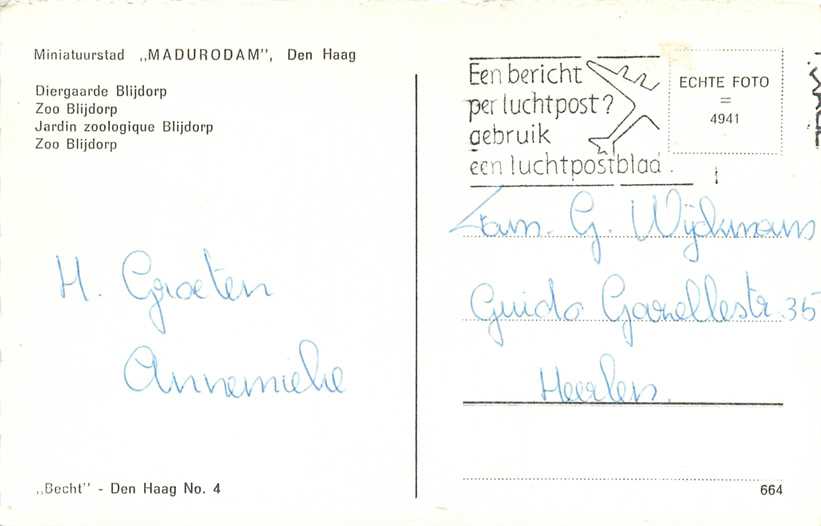 Miniatuurstad „MADURODAM”, Den Haag
Diergaarde Blijdorp
Zoo Blijdorp
Jardin zoologique Blijdorp
Zoo Blijdorp
H. Groeten
Annemieke
„Becht” - Den Haag No. 4
Een bericht
per luchtpost?
gebruik
een luchtpostblad.
ECHTE FOTO
=
4941
Fam. G. Wijckmans
Guido Gazellestr. 35
Heerlen.
664